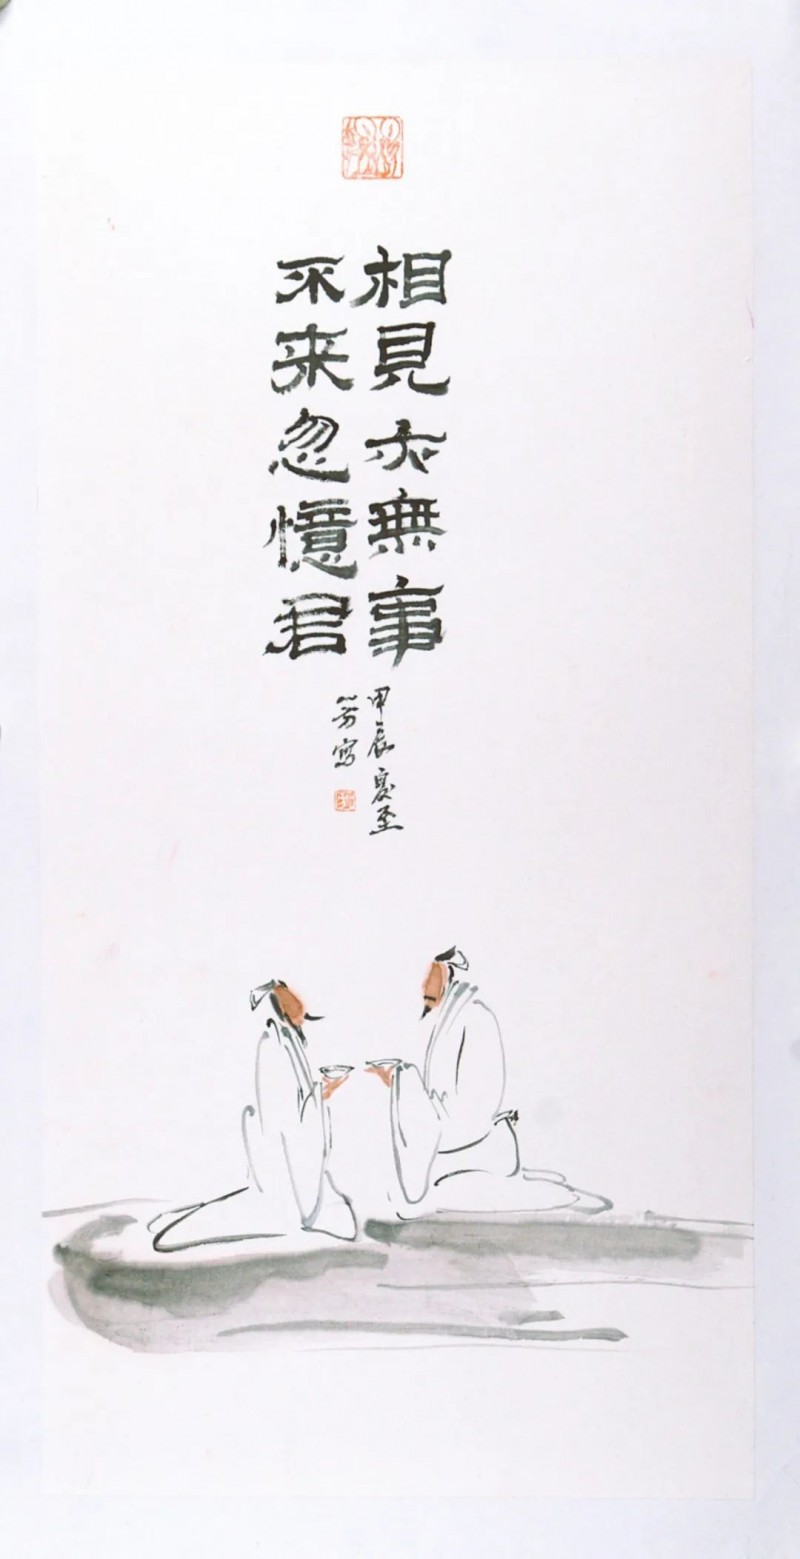 相見亦無事
不来忽憶君
甲辰夏至
芳寫